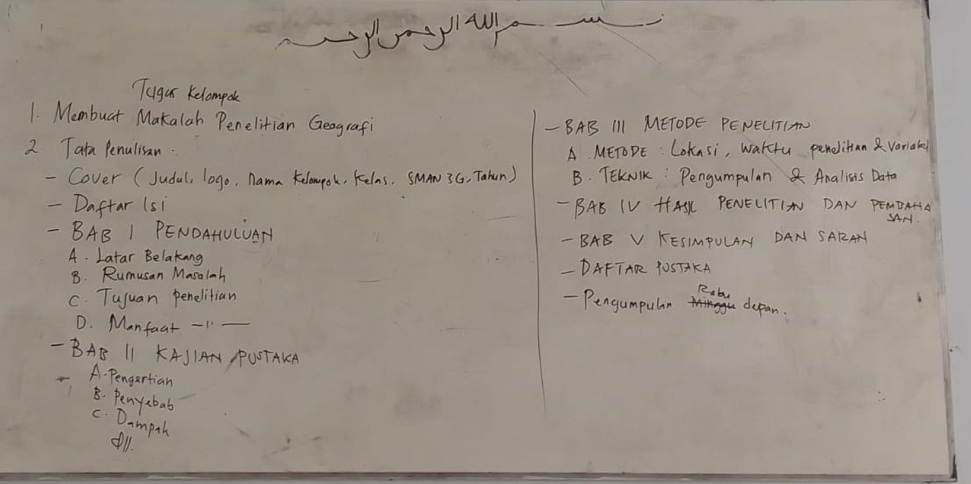 بسم الله الرحمن الرحيم
Tugas Kelompok
1. Membuat Makalah Penelitian Geografi
2. Tata Penulisan.
- Cover (Judul, logo, nama kelompok, kelas, SMAN 3G, Tahun)
- Daftar Isi
- BAB I PENDAHULUAN
A. Latar Belakang
B. Rumusan Masalah
C. Tujuan penelitian
D. Manfaat -"-
- BAB II KAJIAN PUSTAKA
- A. Pengertian
B. Penyebab
C. Dampak
dll.
- BAB III METODE PENELITIAN
A. METODE : Lokasi, waktu penelitian & variabel
B. TEKNIK : Pengumpulan & Analisis Data
- BAB IV HASIL PENELITIAN DAN PEMBAHA
SAN.
- BAB V KESIMPULAN DAN SARAN
- DAFTAR PUSTAKA
Rabu
- Pengumpulan Minggu depan.